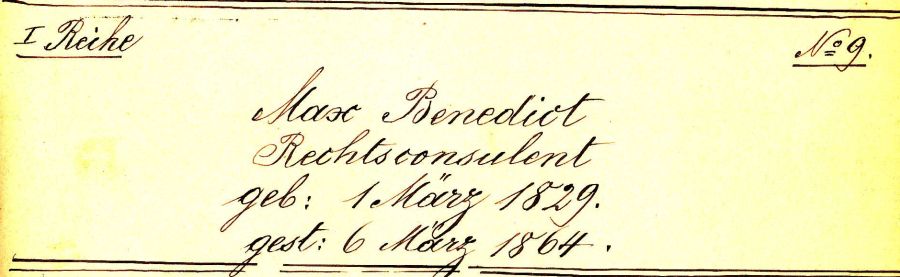 I Reihe
No 9.
Max Benedict
Rechtsconsulent
geb: 1 März 1829.
gest: 6 März 1864.